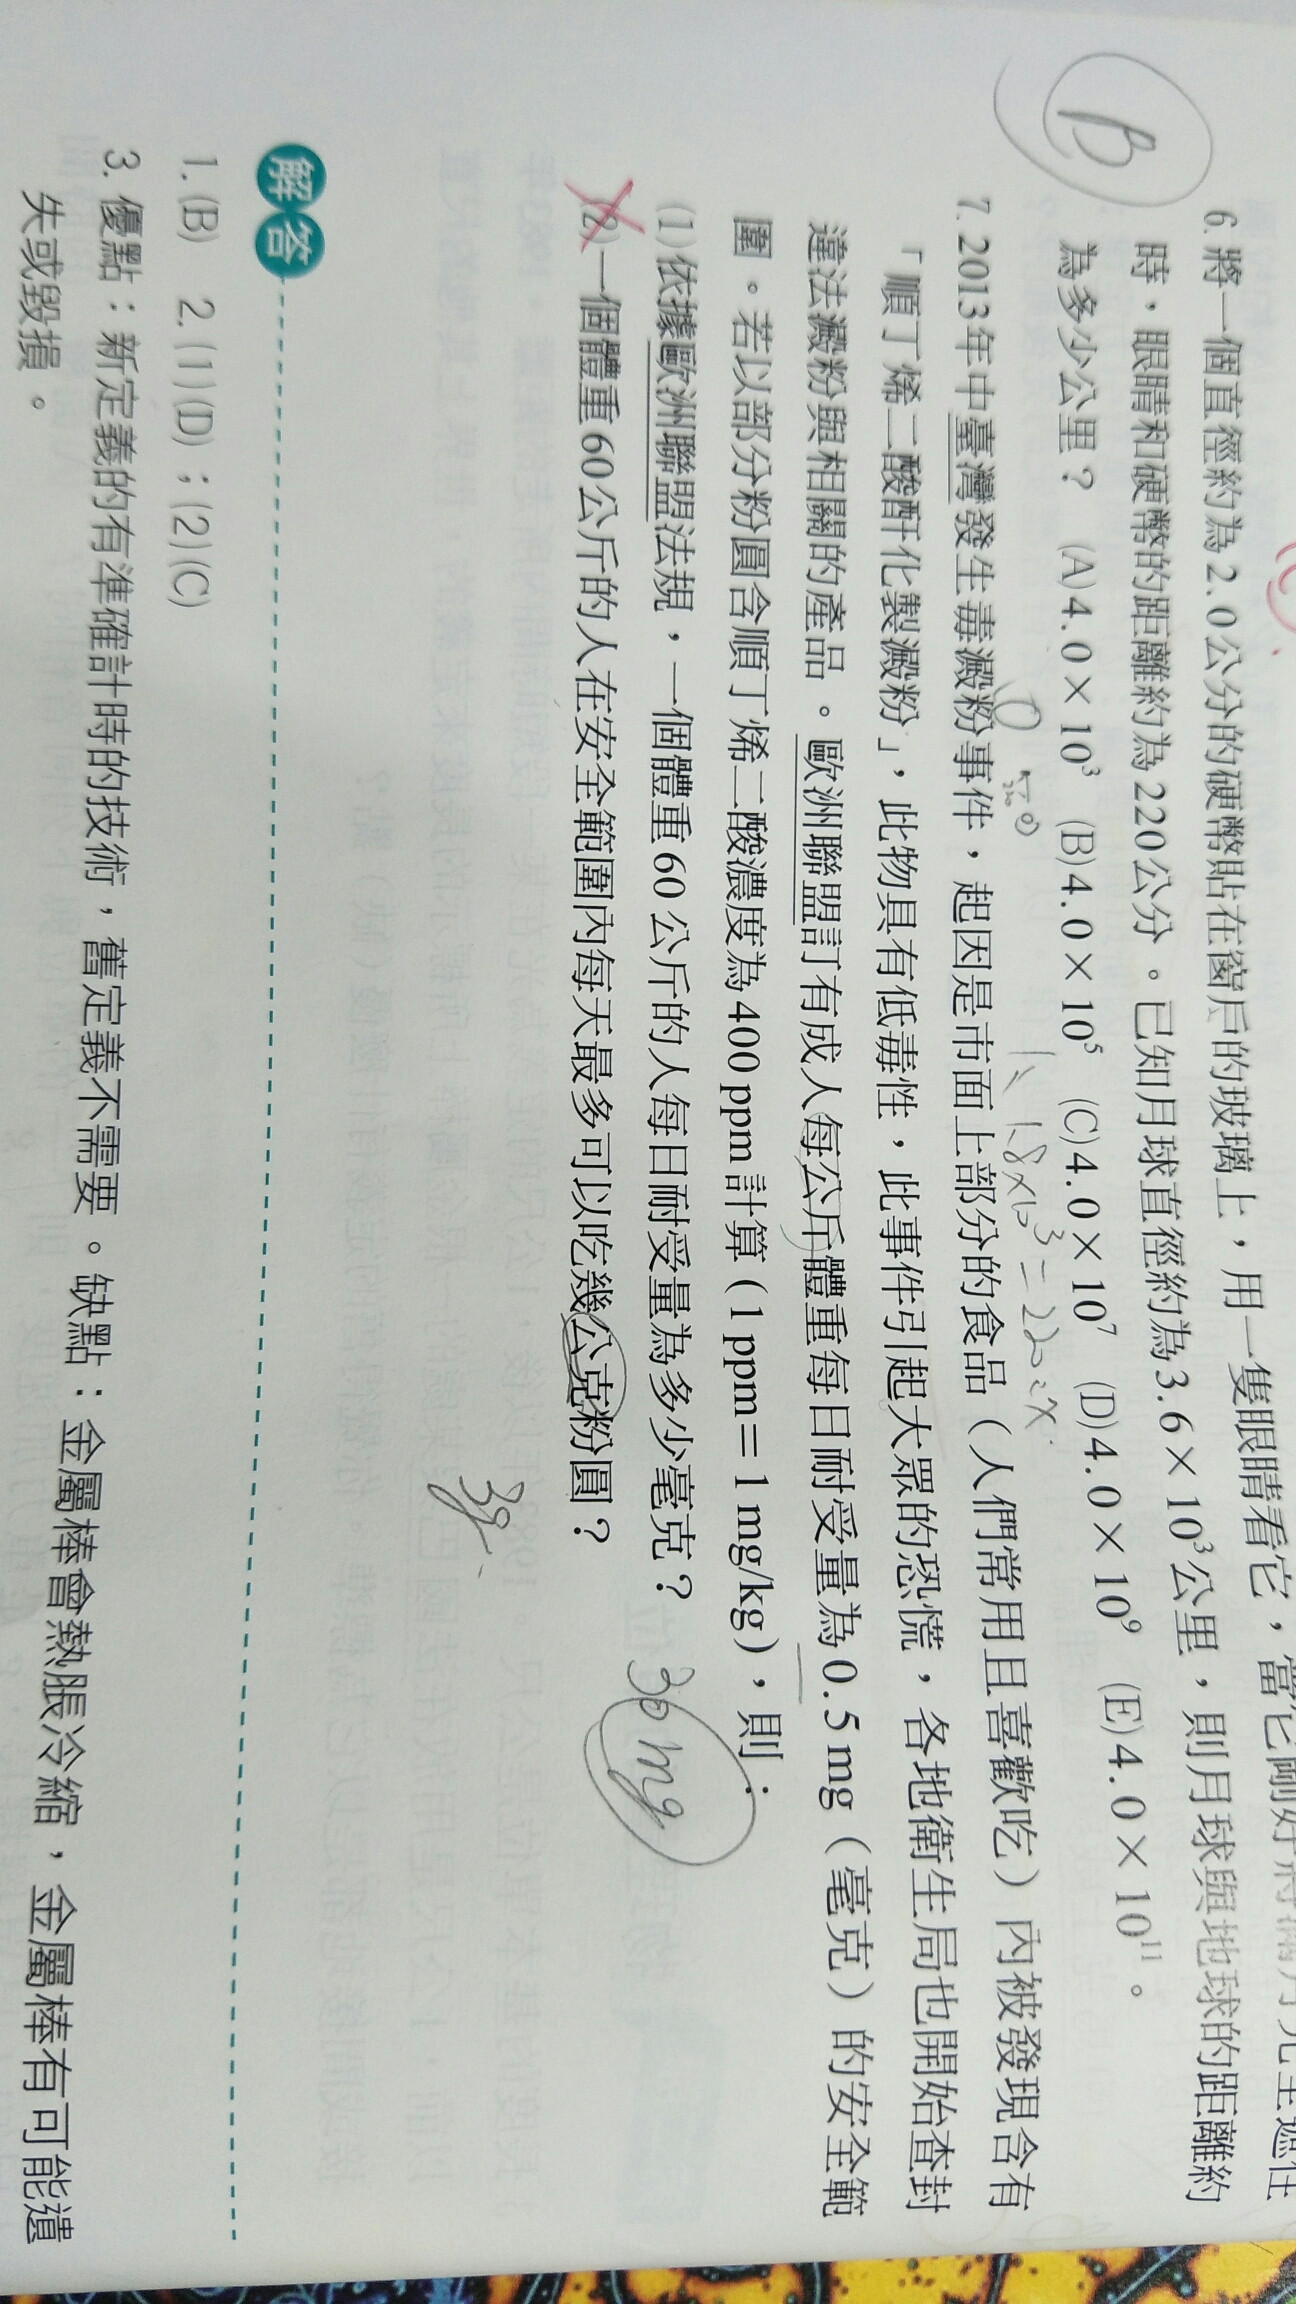 6. 將一個直徑約為2.0公分的硬幣貼在窗戶的玻璃上，用一隻眼睛看它，當它剛好將滿月完全遮住
時，眼睛和硬幣的距離約為220公分。已知月球直徑約為3.6×10³公里，則月球與地球的距離約
為多少公里？ (A)4.0×10³ (B)4.0×10⁵ (C)4.0×10⁷ (D)4.0×10⁹ (E)4.0×10¹¹。
B
1.8×10³=220:x
7. 2013年中臺灣發生毒澱粉事件，起因是市面上部分的食品（人們常用且喜歡吃）內被發現含有
「順丁烯二酸酐化製澱粉」，此物具有低毒性，此事件引起大眾的恐慌，各地衛生局也開始查封
違法澱粉與相關的產品。歐洲聯盟訂有成人每公斤體重每日耐受量為0.5mg（毫克）的安全範
圍。若以部分粉圓含順丁烯二酸濃度為400ppm計算（1ppm＝1mg/kg），則：
(1)依據歐洲聯盟法規，一個體重60公斤的人每日耐受量為多少毫克？
30mg
(2)一個體重60公斤的人在安全範圍內每天最多可以吃幾公克粉圓？
3g
解答
1.(B) 2.(1)(D)；(2)(C)
3. 優點：新定義的有準確計時的技術，舊定義不需要。缺點：金屬棒會熱脹冷縮，金屬棒有可能遺
失或毀損。